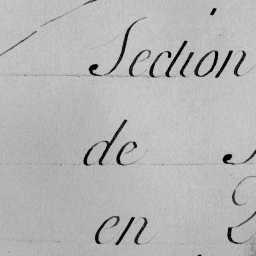 Section
de
en